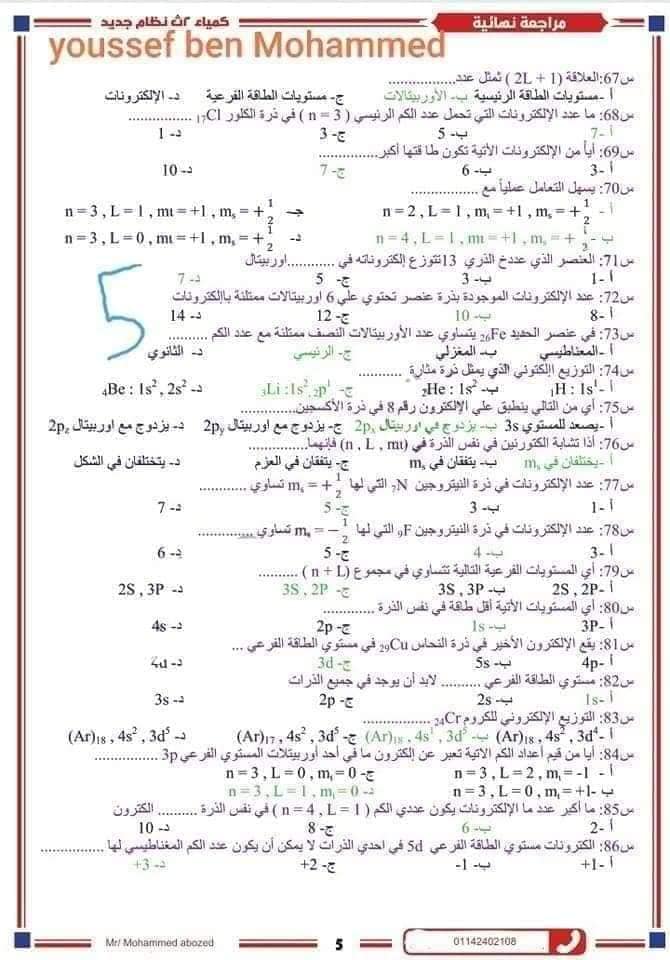 كمياء ٢ث نظام جديد
مراجعة نهائية
youssef ben Mohammed
س67:العلاقة (2L + 1 ) تمثل عدد................
أ -مستويات الطاقة الرئيسية ب- الأوربيتالات ج- مستويات الطاقة الفرعية د- الإلكترونات
س68: ما عدد الإلكترونات التي تحمل عدد الكم الرئيسي ( n = 3 ) في ذرة الكلور 17Cl ................
أ -7 ب- 5 ج- 3 د- 1
س69: أيا من الإلكترونات الأتية تكون طا قتها أكبر...............
أ -3 ب- 6 ج- 7 د- 10
س70: يسهل التعامل عملياً مع ................
أ - n = 2 , L = 1 , mι = +1 , ms = + 1/2 جـ n = 3 , L = 1 , mι = +1 , ms = + 1/2
ب - n = 4 , L = 1 , mι = +1 , ms = + 1/2 د- n = 3 , L = 0 , mι = +1 , ms = + 1/2
س71: العنصر الذي عددخ الذري 13تتوزع إلكتروناته في ............اوربيتال
أ -1 ب- 3 ج- 5 د- 7
س72: عدد الإلكترونات الموجودة بذرة عنصر تحتوي علي 6 اوربيتالات ممتلئة باإلكترونات
أ -8 ب- 10 ج- 12 د- 14
5
س73: في عنصر الحديد 26Fe يتساوي عدد الأوربيتالات النصف ممتلئة مع عدد الكم ..........
أ -المغناطيسي ب- المغزلي ج- الرئيسي د- الثانوي
س74: التوزيع الإلكتوني الذي يمثل ذرة مثارة ...........
أ -1H : 1s1 ب- 2He : 1s2 ج- 3Li :1s2, 2p1 د- 4Be : 1s2, 2s2
س75: أي من التالي ينطبق علي الإلكترون رقم 8 في ذرة الأكسجين..............
أ -يصعد للمستوي 3s ب- يزدوج في اوربيتال 2px ج- يزدوج مع اوربيتال 2py د- يزدوج مع اوربيتال 2pz
س76: أذا تشابة الكتورنين في نفس الذرة في (n , L , mι) فإنهما..............
أ -يختلفان في ms ب- يتفقان في ms ج- يتفقان في العزم د- يتختلفان في الشكل
س77: عدد الإلكترونات في ذرة النيتروجين 7N التي لها ms = + 1/2 تساوي ............
أ -1 ب- 3 ج- 5 د- 7
س78: عدد الإلكترونات في ذرة النيتروجين 9F التي لها ms = − 1/2 تساوي ..............
أ -3 ب- 4 ج- 5 د- 6
س79: أي المستويات الفرعية التالية تتساوي في مجموع (n + L ) ..........
أ -2S , 2P ب- 3S , 3P ج- 3S , 2P د- 2S , 3P
س80: أي المستويات الأتية أقل طاقة في نفس الذرة .............
أ -3P ب- 1s ج- 2p د- 4s
س81: يقع الإلكترون الأخير في ذرة النحاس 29Cu في مستوي الطاقة الفرعي ...
أ -4p ب- 5s ج- 3d د- 4d
س82: مستوي الطاقة الفرعي .......... لابد أن يوجد في جميع الذرات
أ -1s ب- 2s ج- 2p د- 3s
س83: التوزيع الإلكتروني للكروم 24Cr .................
أ -(Ar)18 , 4s2 , 3d4 ب- (Ar)18 , 4s1 , 3d5 ج- (Ar)17 , 4s2 , 3d5 د- (Ar)18 , 4s2 , 3d5
س84: أيا من قيم أعداد الكم الاتية تعبر عن إلكترون ما في أحد أوربيتلات المستوي الفرعي 3p ................
أ - n = 3 , L = 2 , mι = -1 ج- n = 3 , L = 0 , mι = 0
ب- n = 3 , L = 0 , mι = +1 د- n = 3 , L = 1 , mι = 0
س85: ما أكبر عدد ما الإلكترونات يكون عددي الكم ( n = 4 , L = 1 ) في نفس الذرة .......... الكترون
أ -2 ب- 6 ج- 8 د- 10
س86: الكترونات مستوي الطاقة الفرعي 5d في احدي الذرات لا يمكن أن يكون عدد الكم المغناطيسي لها ................
أ -1+ ب- 1- ج- 2+ د- 3+
Mr/ Mohammed abozed
5
01142402108